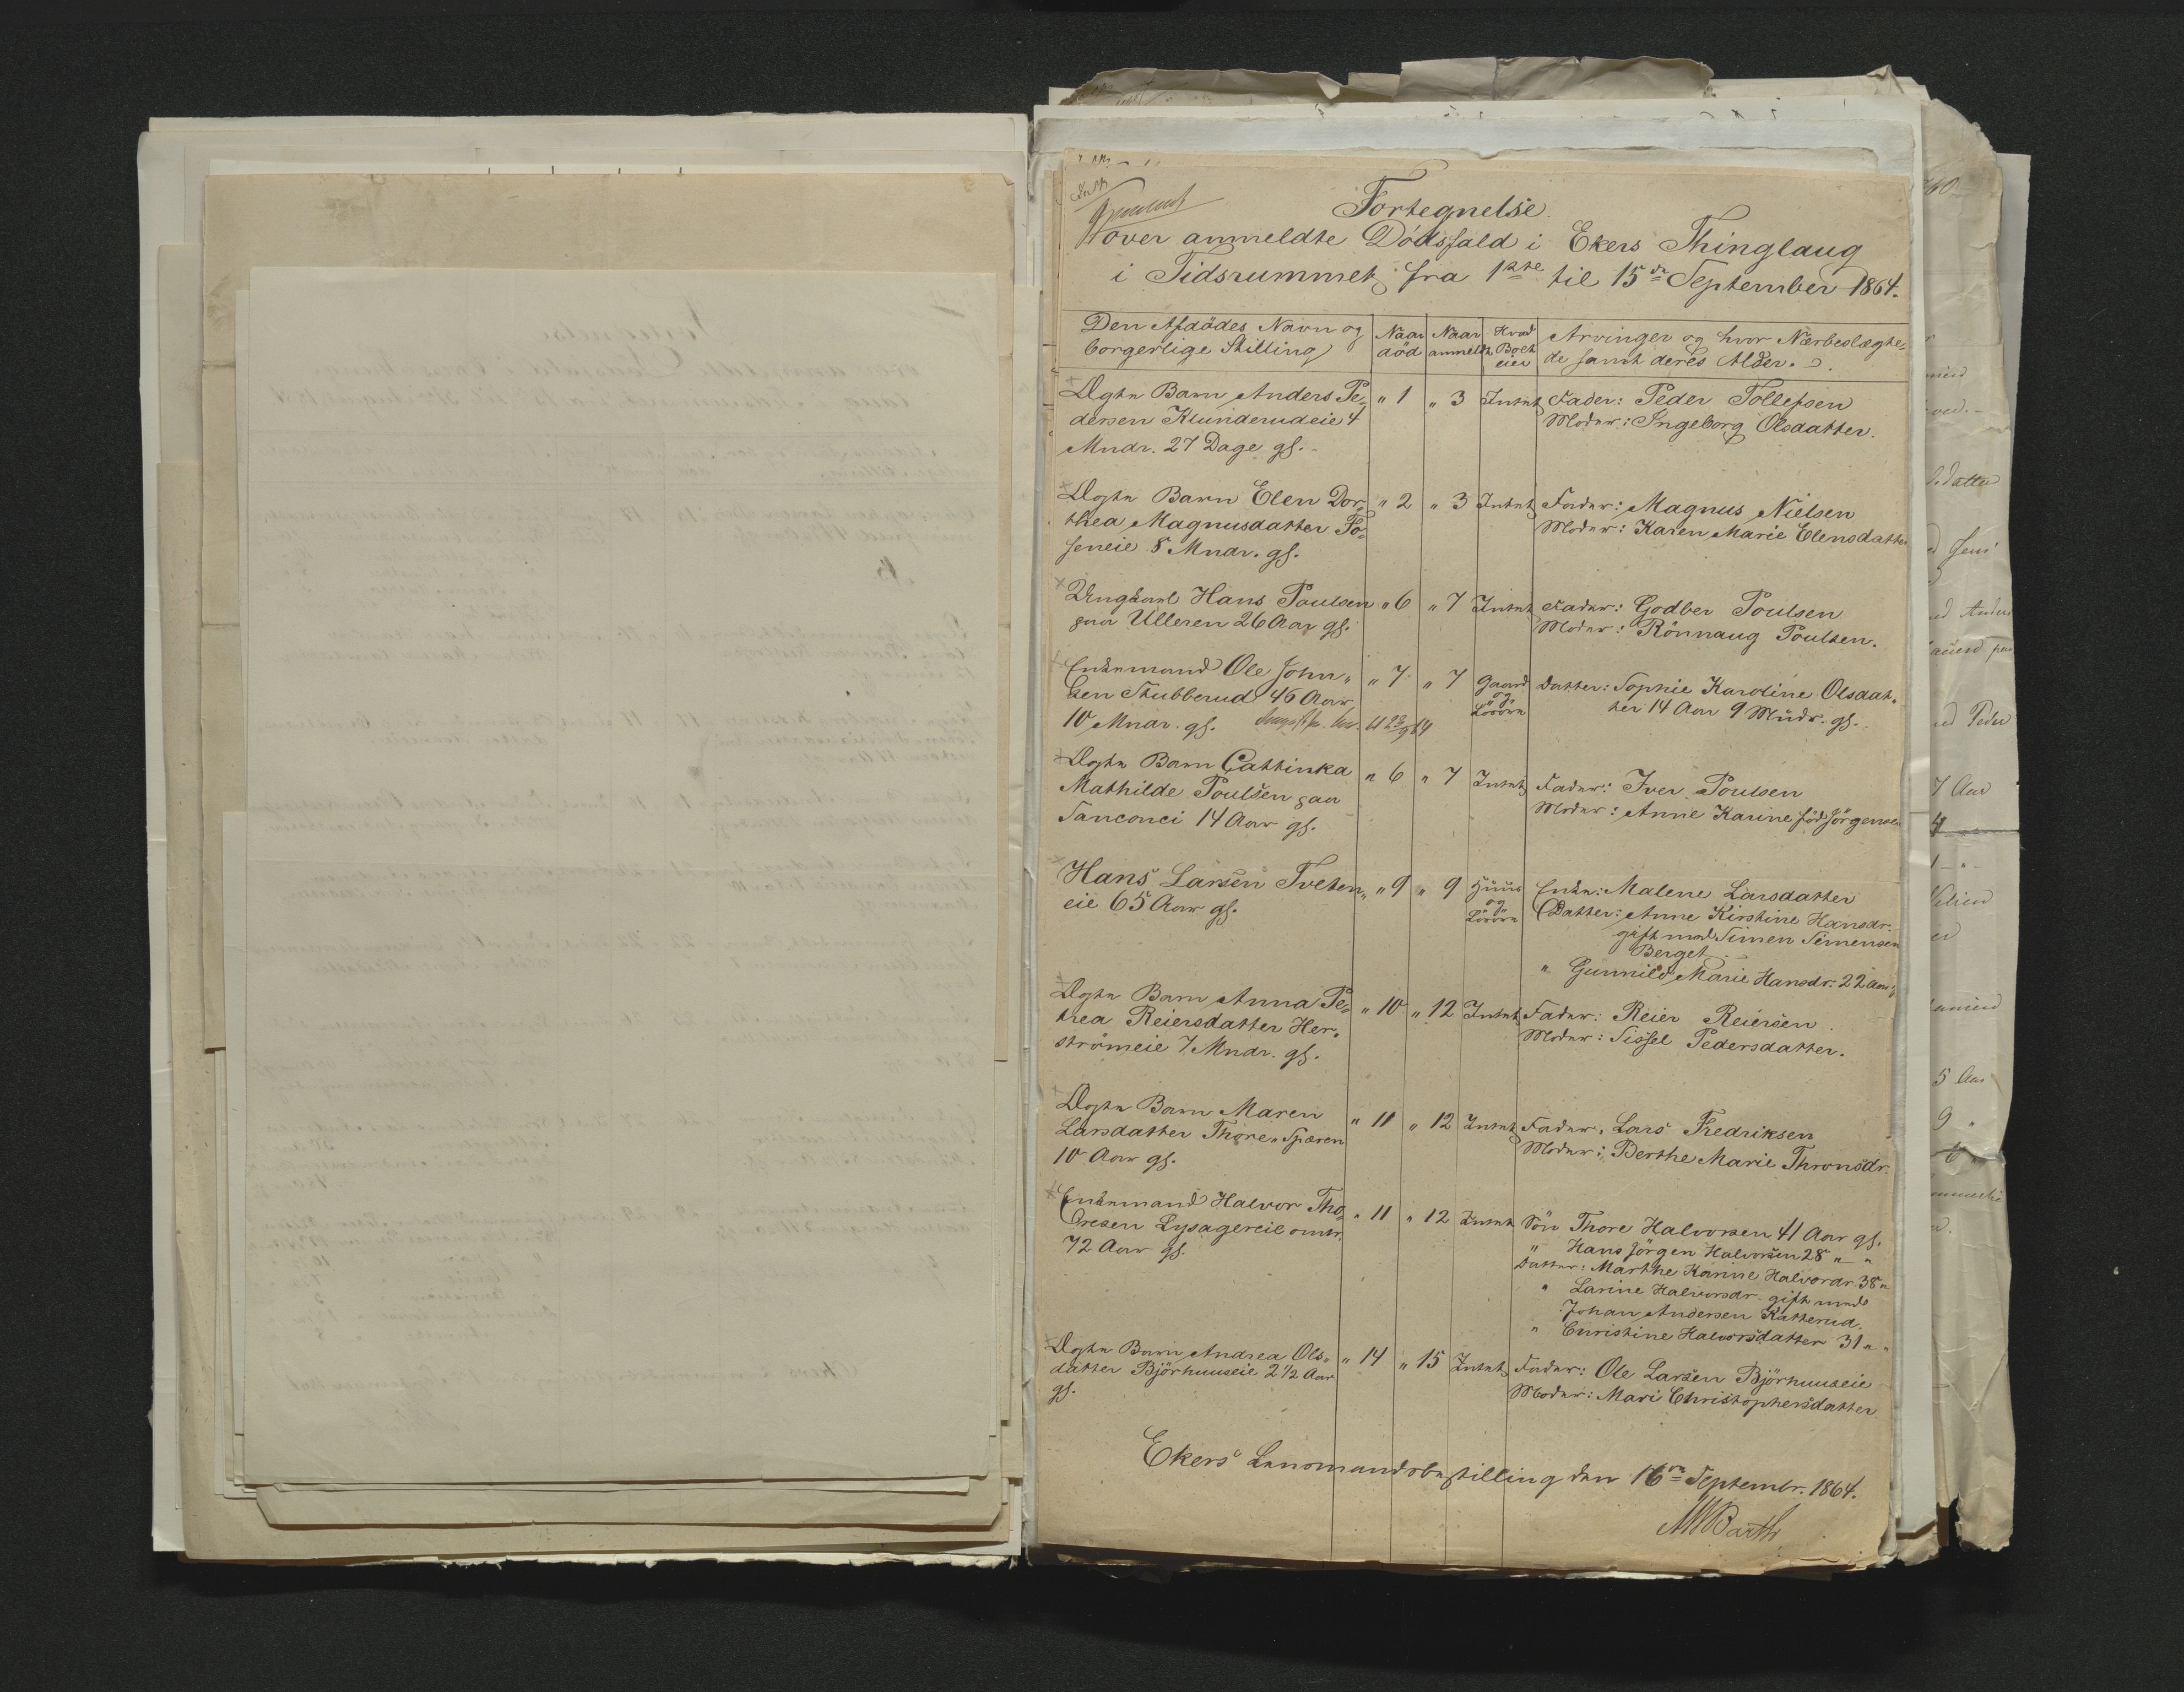 Fortegnelse
over anmeldte Dødsfald i Ekers Thinglaug
i Tidsrummet fra 1ste til 15de September 1864.
Den Afdödes Navn og borgerlige Stilling
Naar död
Naar anmeldt
Hvad Boet eier
Arvinger og hvor Nærbeslægtede samt deres Alder.
Ægte Barn Anders Pe- " 1 " 3 Intet Fader: Peder Tollefsen
dersen Klunderudeie 4 Moder: Ingeborg Olsdatter.
Mndr. 27 Dage gl.
Ægte Barn Elen Dor- " 2 " 3 Intet Fader: Magnus Nielsen
thea Magnusdatter Fo- Moder: Karen Marie Elensdatter
seneie 8 Mndr. gl.
Ungkarl Hans Poulsen " 6 " 7 Intet Fader: Godber Poulsen
paa Ulleren 26 Aar gl. Moder: Rönnaug Poulsen.
Enkemand Ole John- " 7 " 7 Gaard og Lösöre Datter: Sophie Karoline Olsdat-
sen Stubberud 46 Aar ter 14 Aar 9 Mndr. gl.
10 Mndr. gl.
Ægte Barn Cathinka " 6 " 7 Intet Fader: Iver Poulsen
Mathilde Poulsen paa Moder: Anne Karine föd Jörgensen
Sanconci 14 Aar gl.
Hans Larsen Tveten- " 9 " 9 Huus og Lösöre Enke: Malene Larsdatter
eie 65 Aar gl. Datter: Anne Kirstine Hansdr.
gift med Simen Simensen
Berget
" Gunnild Marie Hansdr. 22 Aar gl.
Ægte Barn Anna Pe- " 10 " 12 Intet Fader: Reier Reiersen
trea Reiersdatter Her- Moder: Sissel Pedersdatter.
strömeie 7 Mndr. gl.
Ægte Barn Maren " 11 " 12 Intet Fader: Lars Fredriksen
Larsdatter Thore-Spæren Moder: Berthe Marie Thronsdr.
10 Aar gl.
Enkemand Halvor Tho- " 11 " 12 Intet Sön Thore Halvorsen 41 Aar gl.
resen Lysagereie omtr. " Hans Jörgen Halvorsen 28 " "
72 Aar gl. Datter: Marthe Karine Halvorsdr. 38 "
" Larine Halvorsdr. gift med
Johan Andersen Katterud.
" Christine Halvorsdatter 31 " "
Ægte Barn Andrea Ols- " 14 " 15 Intet Fader: Ole Larsen Björhuuseie
datter Björhuuseie 2 1/2 Aar Moder: Mari Christophersdatter
gl.
Ekers Lensmandsbestilling den 16de Septembr. 1864.
Barth